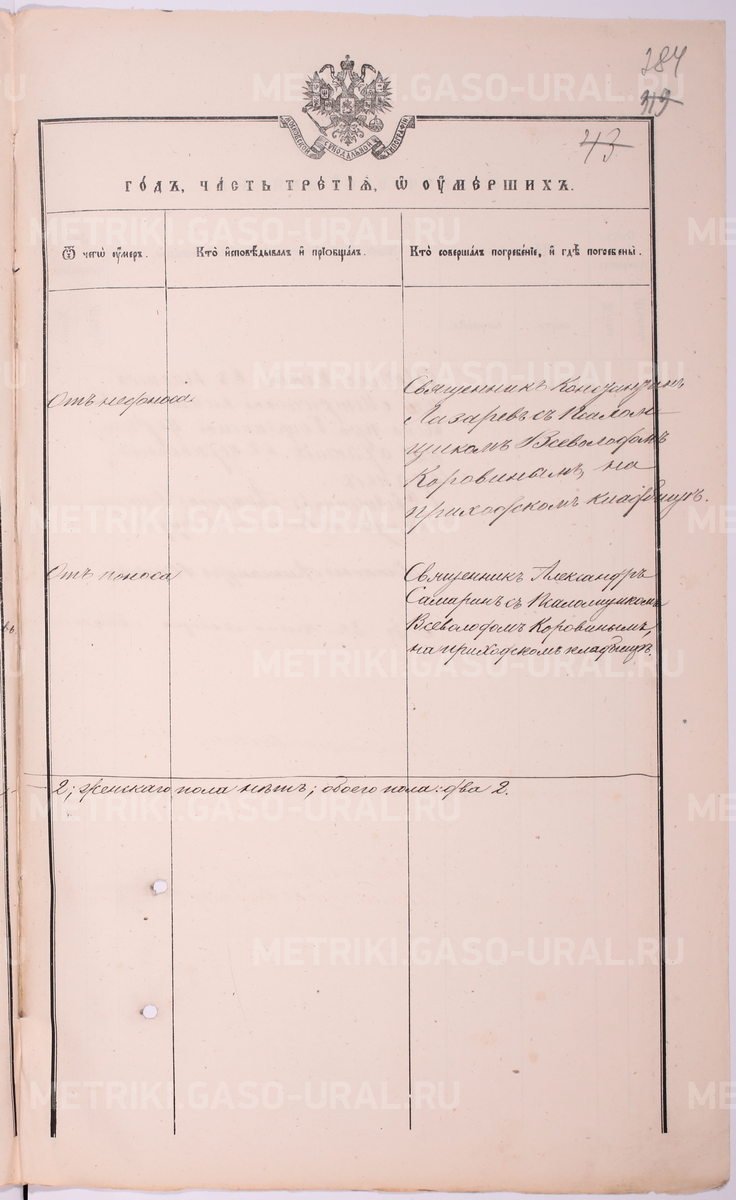 284
119
43
МОСКОВСКОЙ СѴНОДАЛЬНОЙ ТИПОГРАФІИ
ГО́ДЪ, ЧА́СТЬ ТРЕ́ТІѦ, Ѡ҆ ОУ҆МЕ́РШИХЪ.
Ѿ чегѡ̀ оу҆́меръ.
Кто̀ и҆сповѣ́дывалъ и҆ прїѡбща́лъ.
Кто̀ соверша́лъ погребе́нїе, и҆ гдѣ̀ погребены̀.
Отъ недоноса
Священникъ Константинъ
Лазаревъ съ Псалом-
щикомъ Всеволодомъ
Коровинымъ, на
приходскомъ кладбищѣ.
Отъ поноса
Священникъ Александръ
Самаринъ съ Псаломщикомъ
Всеволодомъ Коровинымъ,
на приходскомъ кладбищѣ.
2; женскаго пола нѣтъ; обоего пола: два 2.
METRIKI.GASO-URAL.RU